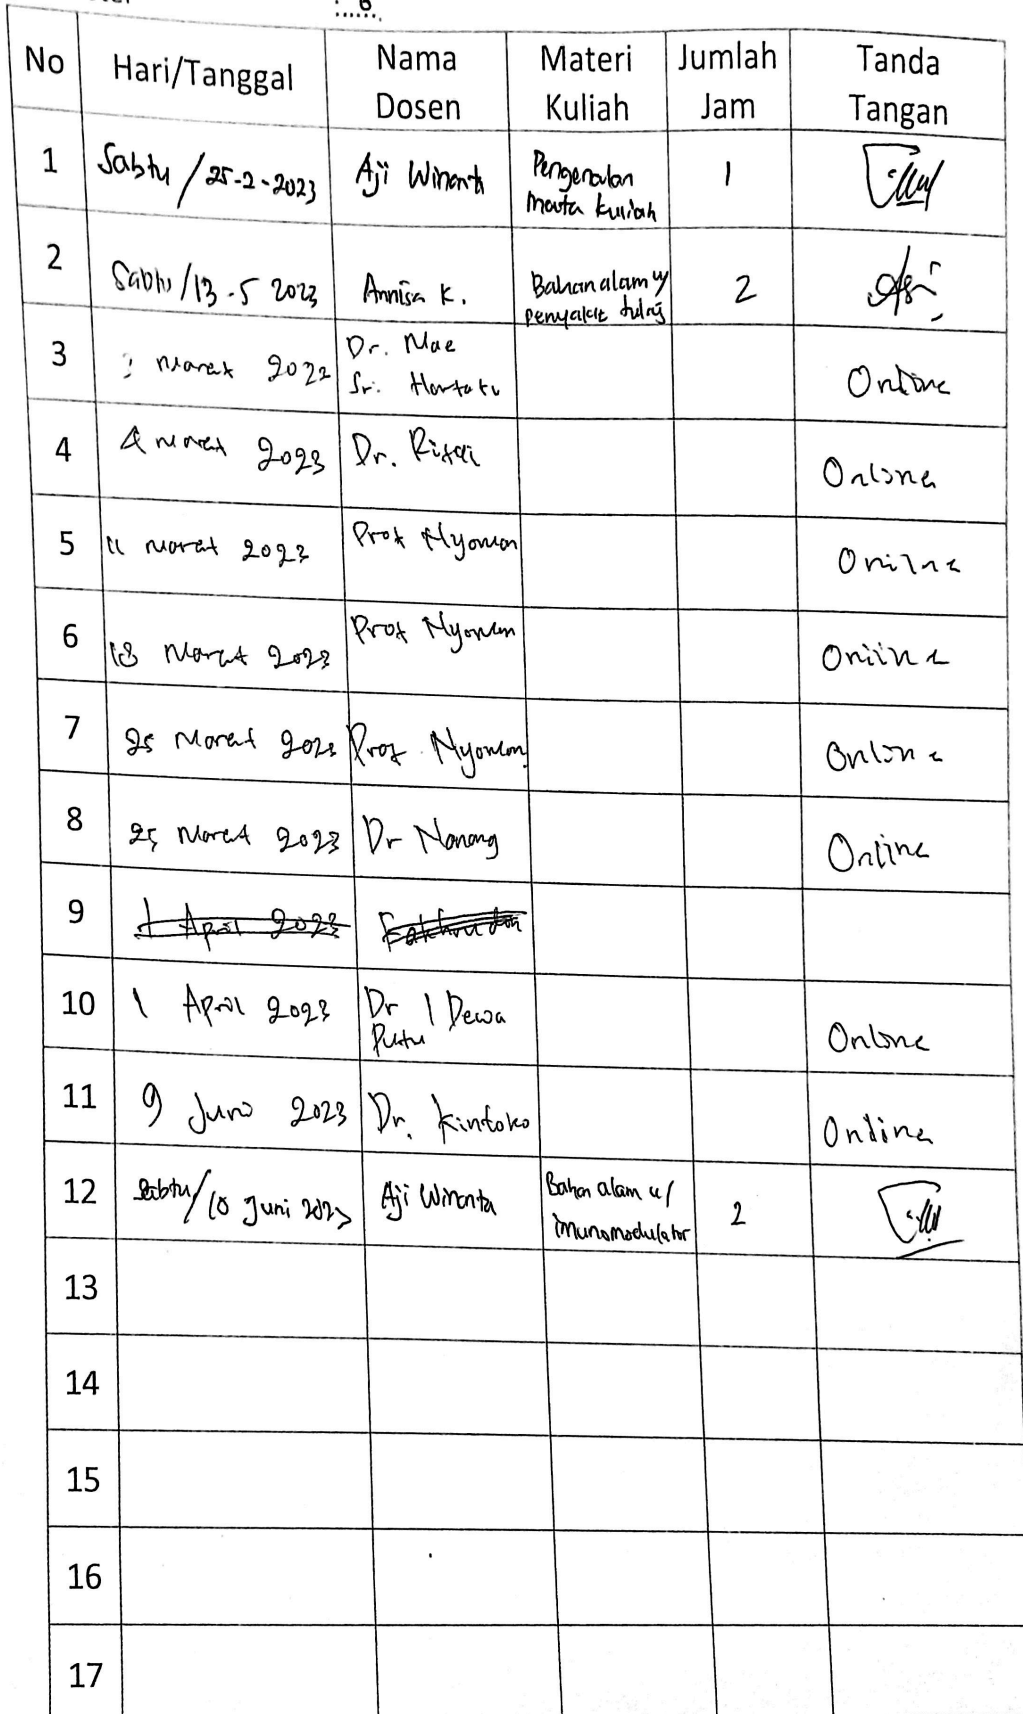 6
No Hari/Tanggal Nama Dosen Materi Kuliah Jumlah Jam Tanda Tangan
1 Sabtu / 25-2-2023 Aji Winanta Pengenalan Mata kuliah 1
2 Sabtu / 13-5 2023 Annisa K. Bahan alam u/ penyakit tulang 2
3 Maret 2022 Dr. Mae Sri. Hartatu Online
4 4 Maret 2023 Dr. Rifai Online
5 11 Maret 2023 Prof Nyoman Online
6 18 Maret 2023 Prof Nyoman Online
7 25 Maret 2023 Prof Nyoman Online
8 25 Maret 2023 Dr Nanang Online
9 1 April 2023 Fakhrudin
10 1 April 2023 Dr I Dewa Putu Online
11 9 Juni 2023 Dr. Kintoko Online
12 Sabtu / 10 Juni 2023 Aji Winanta Bahan alam u/ imunomodulator 2
13
14
15
16
17